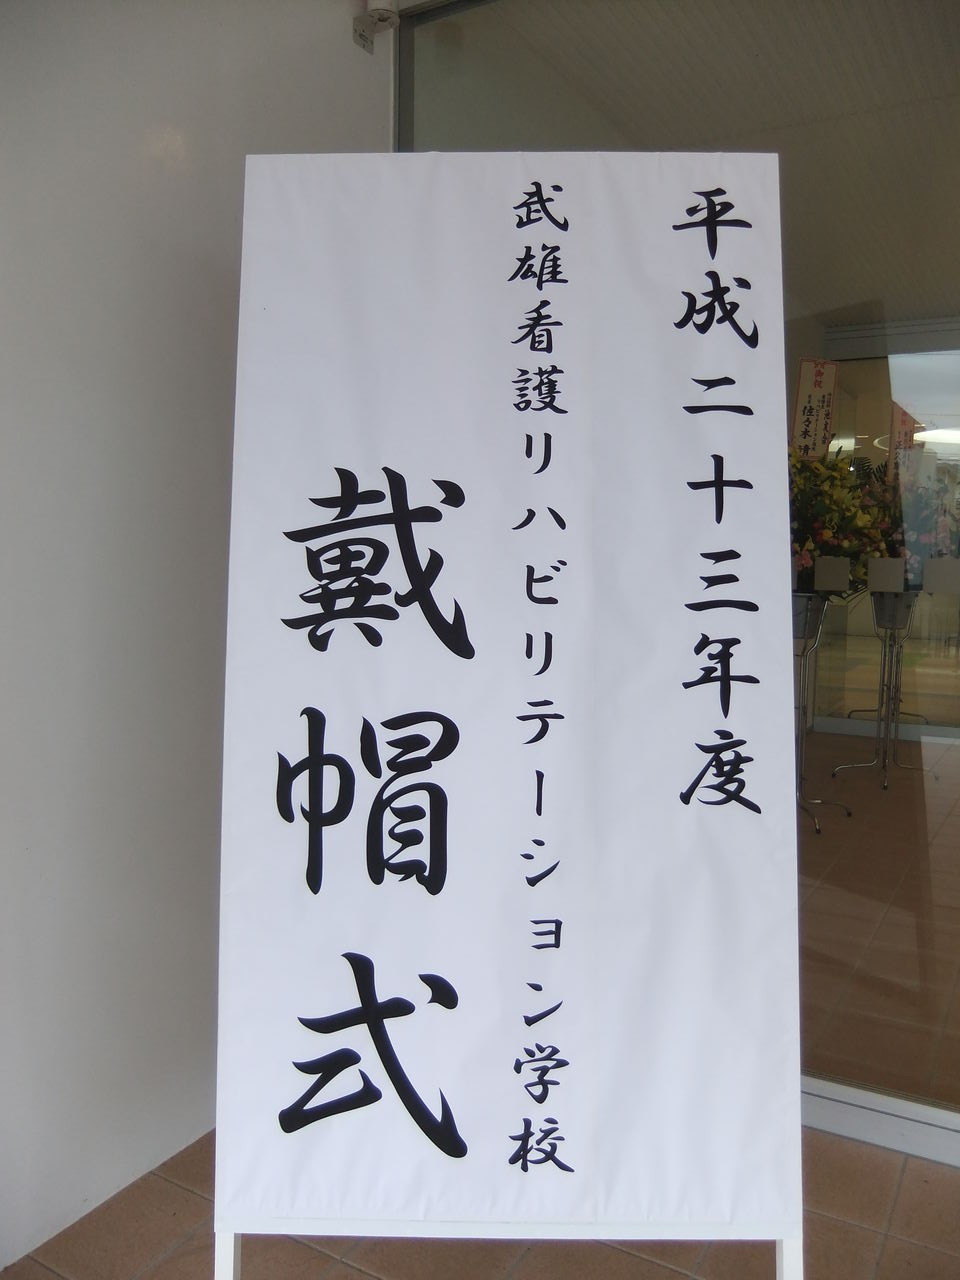 平成二十三年度
武雄看護リハビリテーション学校
戴帽式
御祝
佐々木 清